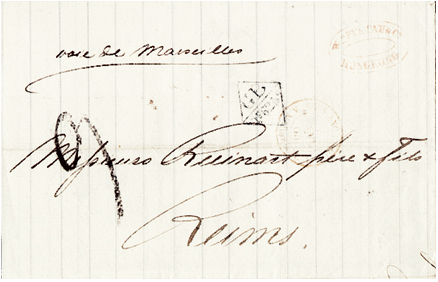 voie de Marseilles
HONGKONG
GB
1F62
Messieurs Ruinart père & fils
Reims.